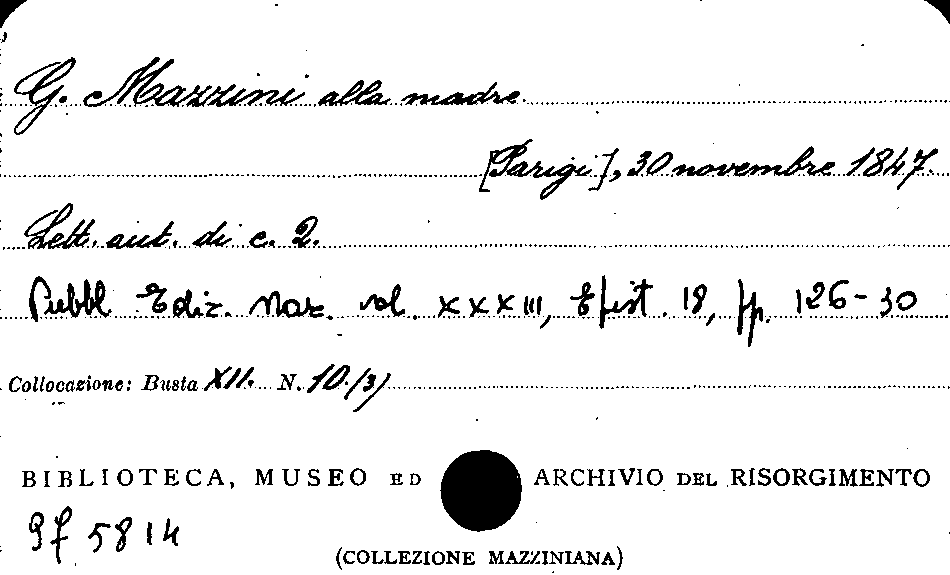 G. Mazzini alla madre
[Parigi], 30 novembre 1847.
Lett. aut. di c. 2.
Pubbl. Ediz. Naz. vol. XXXIII, Epist. 18, pp. 126-30
Collocazione: Busta XII. N. 10.(3)
BIBLIOTECA, MUSEO ED ARCHIVIO DEL RISORGIMENTO
5814
(COLLEZIONE MAZZINIANA)